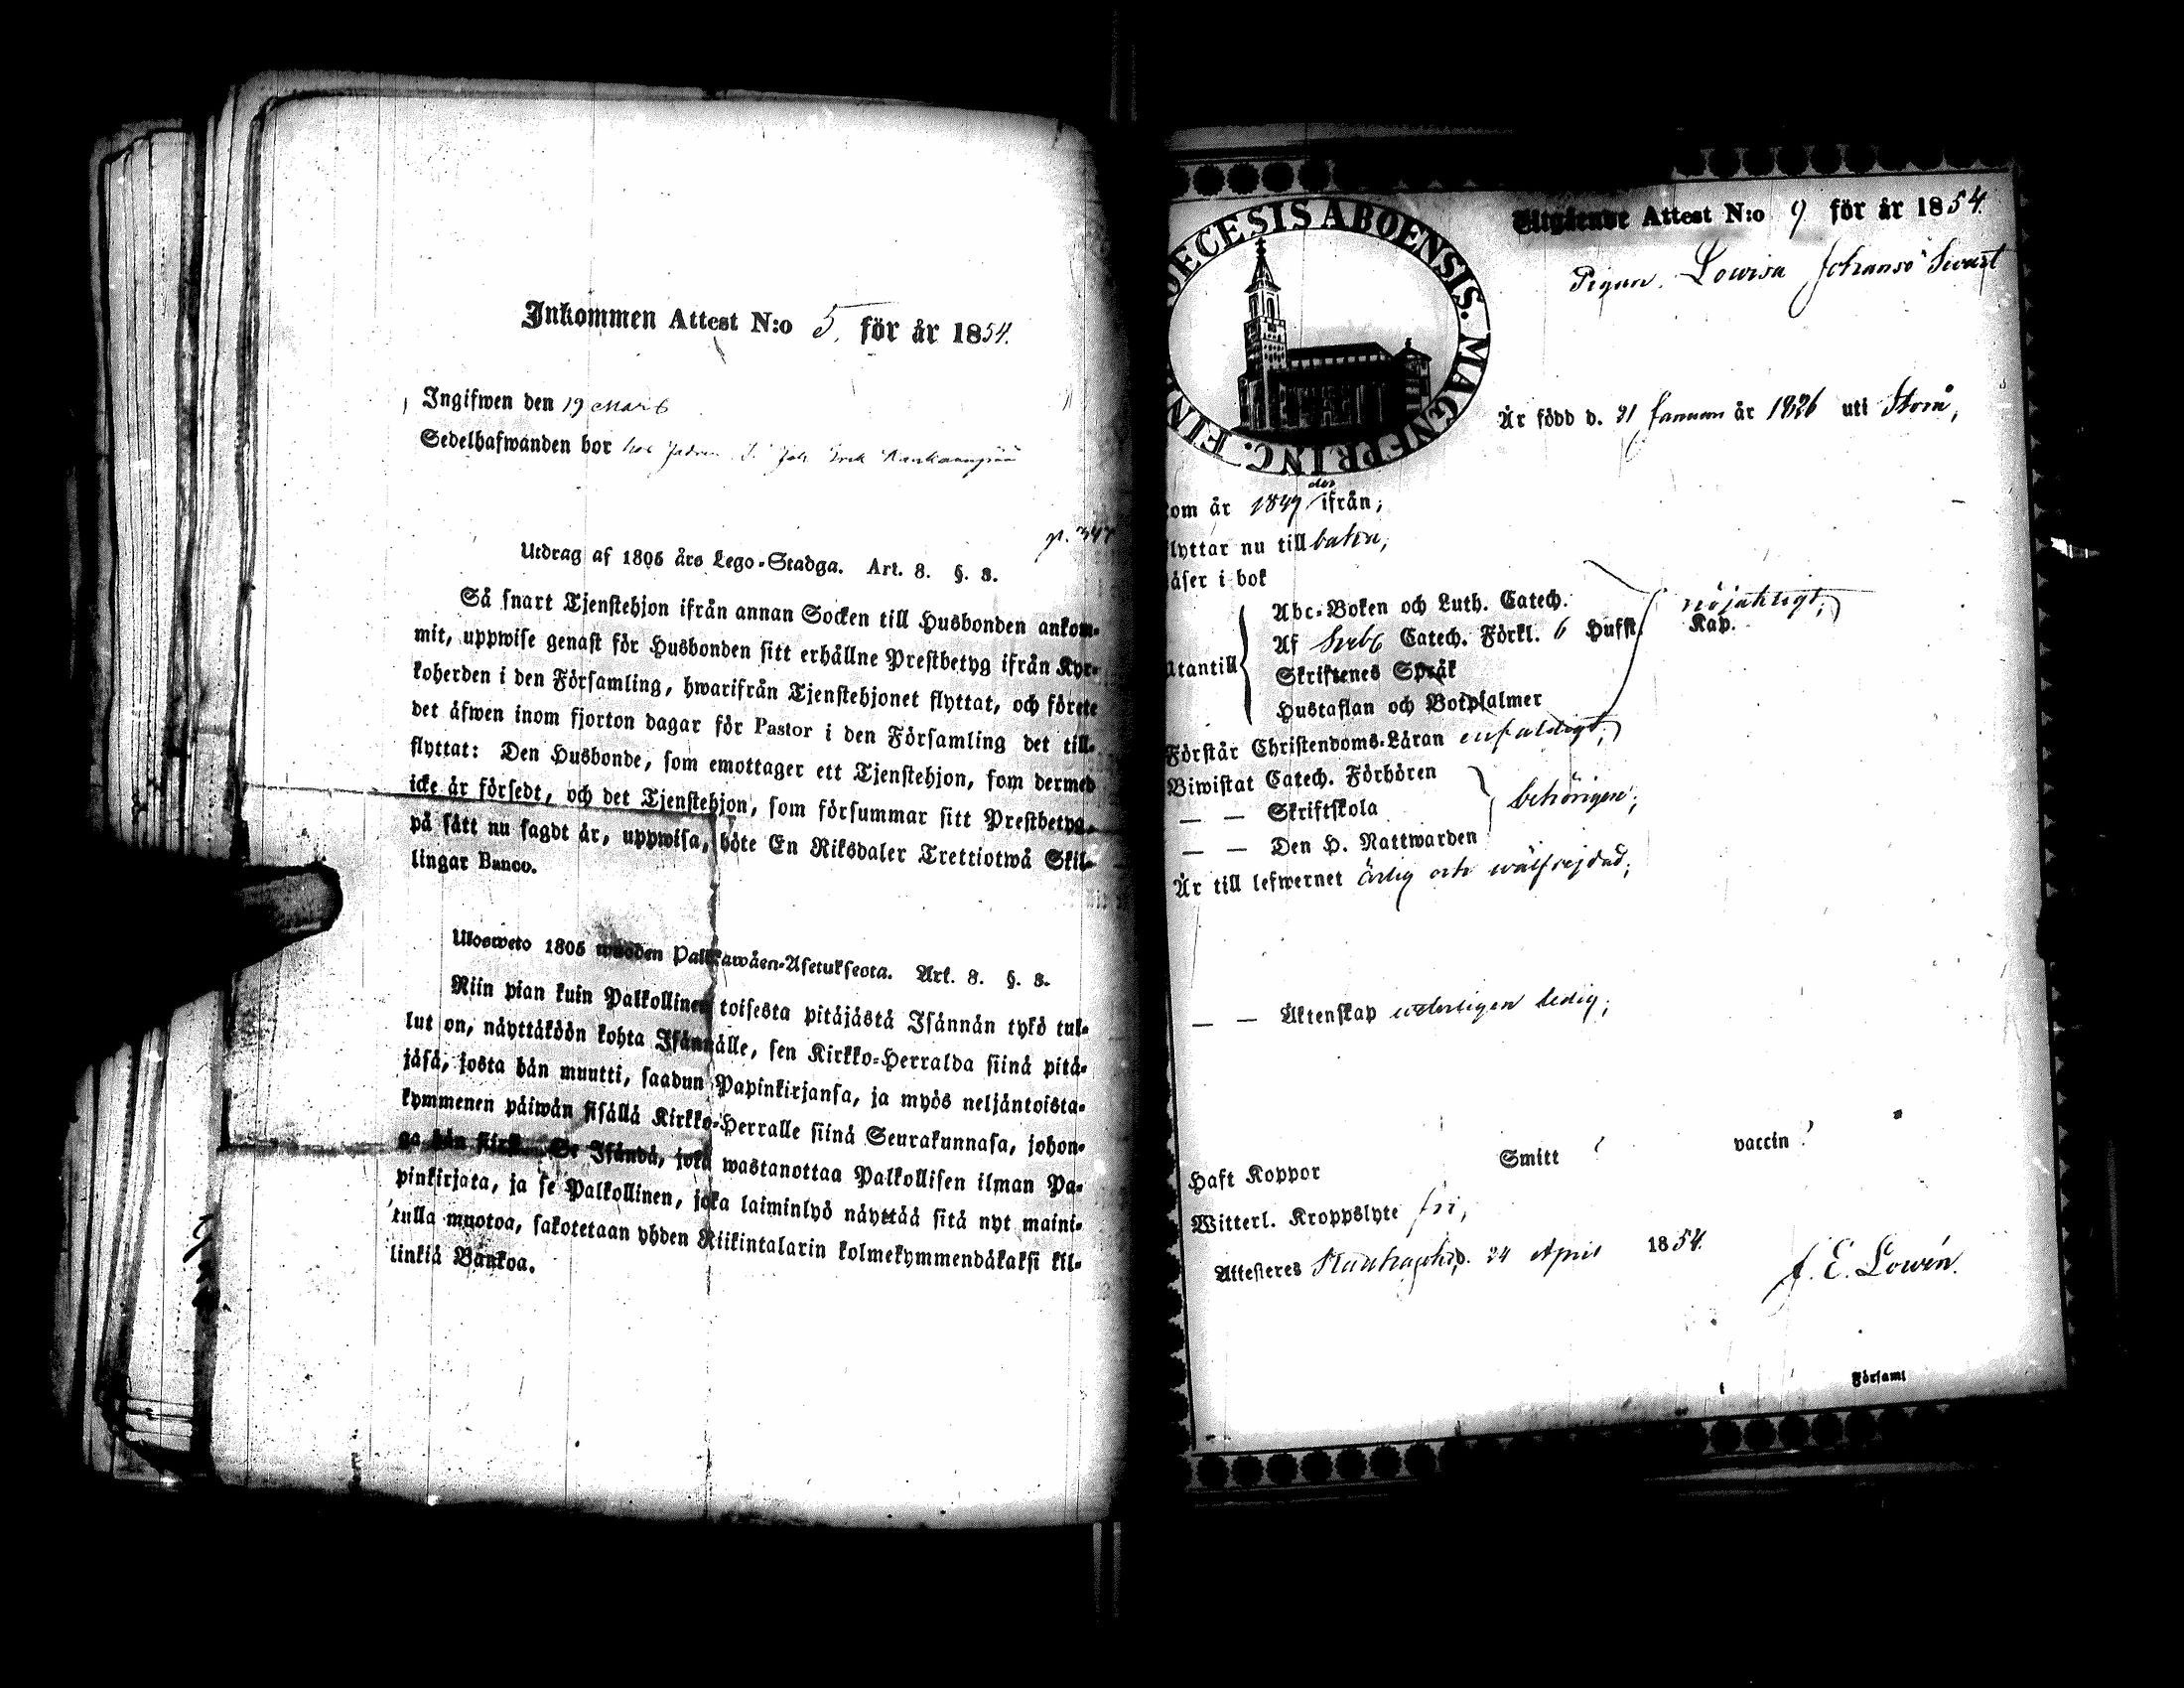 Inkommen Attest N:o 5. för år 1854.
Ingifwen den 19 Mars
Sedelhafwanden bor hos
p. 347
Utdrag af 1805 års Lego-Stadga. Art. 8. §. 3.
Så snart Tjenstehjon ifrån annan Socken till Husbonden ankom-
mit, uppwise genast för Husbonden sitt erhållne Prestbetyg ifrån Kyr-
koherden i den Församling, hwarifrån Tjenstehjonet flyttat, och förete
det äfwen inom fjorton dagar för Pastor i den Församling det till-
flyttat: Den Husbonde, som emottager ett Tjenstehjon, som dermed
icke är försedt, och det Tjenstehjon, som försummar sitt Prestbetyg,
på sätt nu sagdt är, uppwisa, böte En Riksdaler Trettiotwå Skil-
lingar Banco.
Ulosweto 1805 wuoden Palkkawäen-Asetuksesta. Art. 8. §. 3.
Niin pian kuin Palkollinen toisesta pitäjästä Isännän tykö tul-
lut on, näyttäköön kohta Isännälle, sen Kirkko-Herralda siinä pitä-
jäsä, josta hän muutti, saadun Papinkirjansa, ja myös neljäntoista-
kymmenen päiwän sisällä Kirkko-Herralle siinä Seurakunnasa, johon-
ga hän siirsi. Se Isändä, joka wastanottaa Palkollisen ilman Pa-
pinkirjata, ja se Palkollinen, joka laiminlyö näyttää sitä nyt maini-
tulla muotoa, sakotetaan yhden Riikintalarin kolmekymmendäkaksi kil-
linkiä Bankoa.
DECESIS ABOENSIS. MAGNI PRINC. FIN
Utgående Attest N:o 9 för år 1854.
Pigan Lowisa Johansd:r Sivust
Är född d. 21 Januari år 1826 uti Storå,
om år 1849 ifrån;
lyttar nu till
äser i bok
Abc-Boken och Luth. Catech.
Af Sveb. Catech. Förkl. 6 Hufst. Kap. nöjaktigt;
Utantill Skriftenes Språk
Hustaflan och Botpsalmer
Förstår Christendoms-Läran enfaldigt;
Biwistat Catech. Förhören
— — Skriftskola behörigen;
— — Den H. Nattwarden
Är till lefwernet ärlig och wälfrejdad;
— — Äktenskap wederligen ledig;
Haft Koppor Smitt ? vaccin ?
Witterl. Kroppslyte fri,
Attesteres d. 24 April 1854.
J. E. Lowén.
Församl